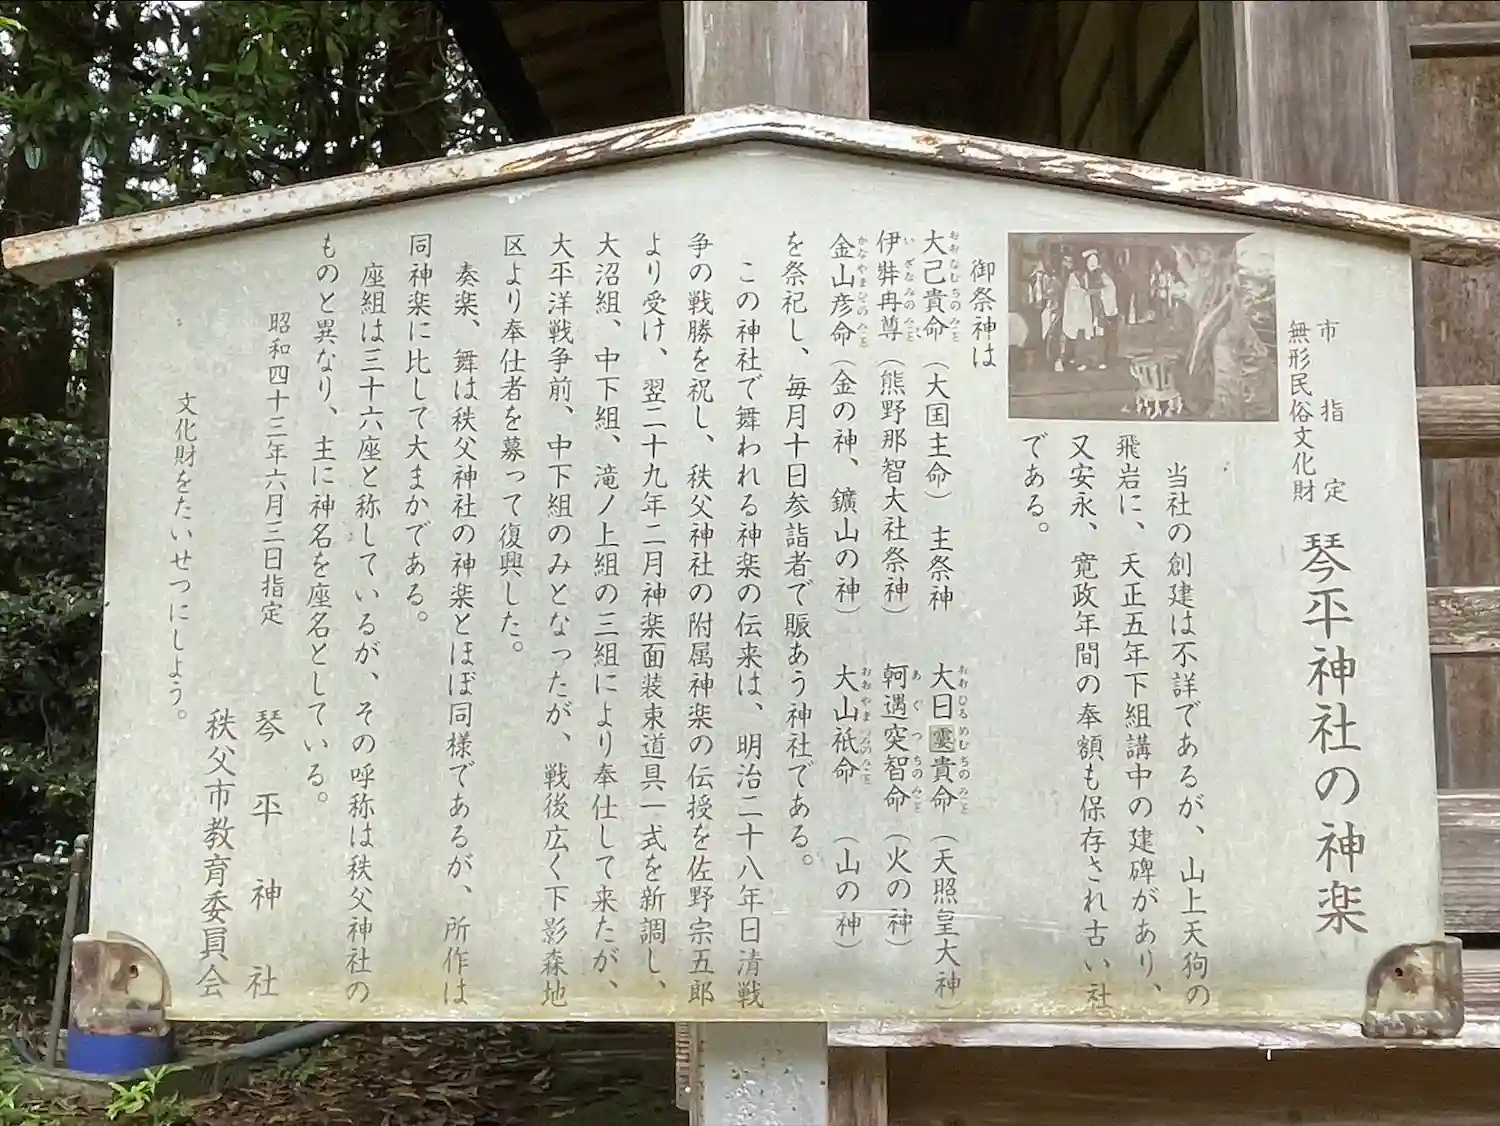 市指定
無形民俗文化財
琴平神社の神楽
当社の創建は不詳であるが、山上天狗の
飛岩に、天正五年下組講中の建碑があり、
又安永、寛政年間の奉額も保存され古い社
である。
御祭神は
大己貴命（大国主命）主祭神 大日孁貴命（天照皇大神）
伊弉冉尊（熊野那智大社祭神） 軻遇突智命（火の神）
金山彦命（金の神、鑛山の神） 大山祇命（山の神）
を祭祀し、毎月十日参詣者で賑あう神社である。
この神社で舞われる神楽の伝来は、明治二十八年日清戦
争の戦勝を祝し、秩父神社の附属神楽の伝授を佐野宗五郎
より受け、翌二十九年二月神楽面装束道具一式を新調し、
大沼組、中下組、滝ノ上組の三組により奉仕して来たが、
大平洋戦争前、中下組のみとなったが、戦後広く下影森地
区より奉仕者を募って復興した。
奏楽、舞は秩父神社の神楽とほぼ同様であるが、所作は
同神楽に比して大まかである。
座組は三十六座と称しているが、その呼称は秩父神社の
ものと異なり、主に神名を座名としている。
昭和四十三年六月三日指定
琴平神社
秩父市教育委員会
文化財をたいせつにしよう。